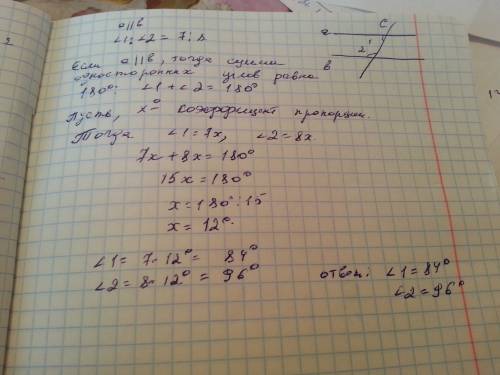 a||b
∠1:∠2 = 7:8
Если a||b, тогда сумма
односторонних углов равна
180° ∠1+∠2=180°
Пусть, x° коэффициент пропорции.
Тогда ∠1=7x, ∠2=8x.
7x+8x=180°
15x=180°
x=180°:15
x=12°.
∠1= 7·12°= 84°
∠2= 8·12°= 96°
ответ: ∠1=84°
∠2=96°
c
a
1
2
b